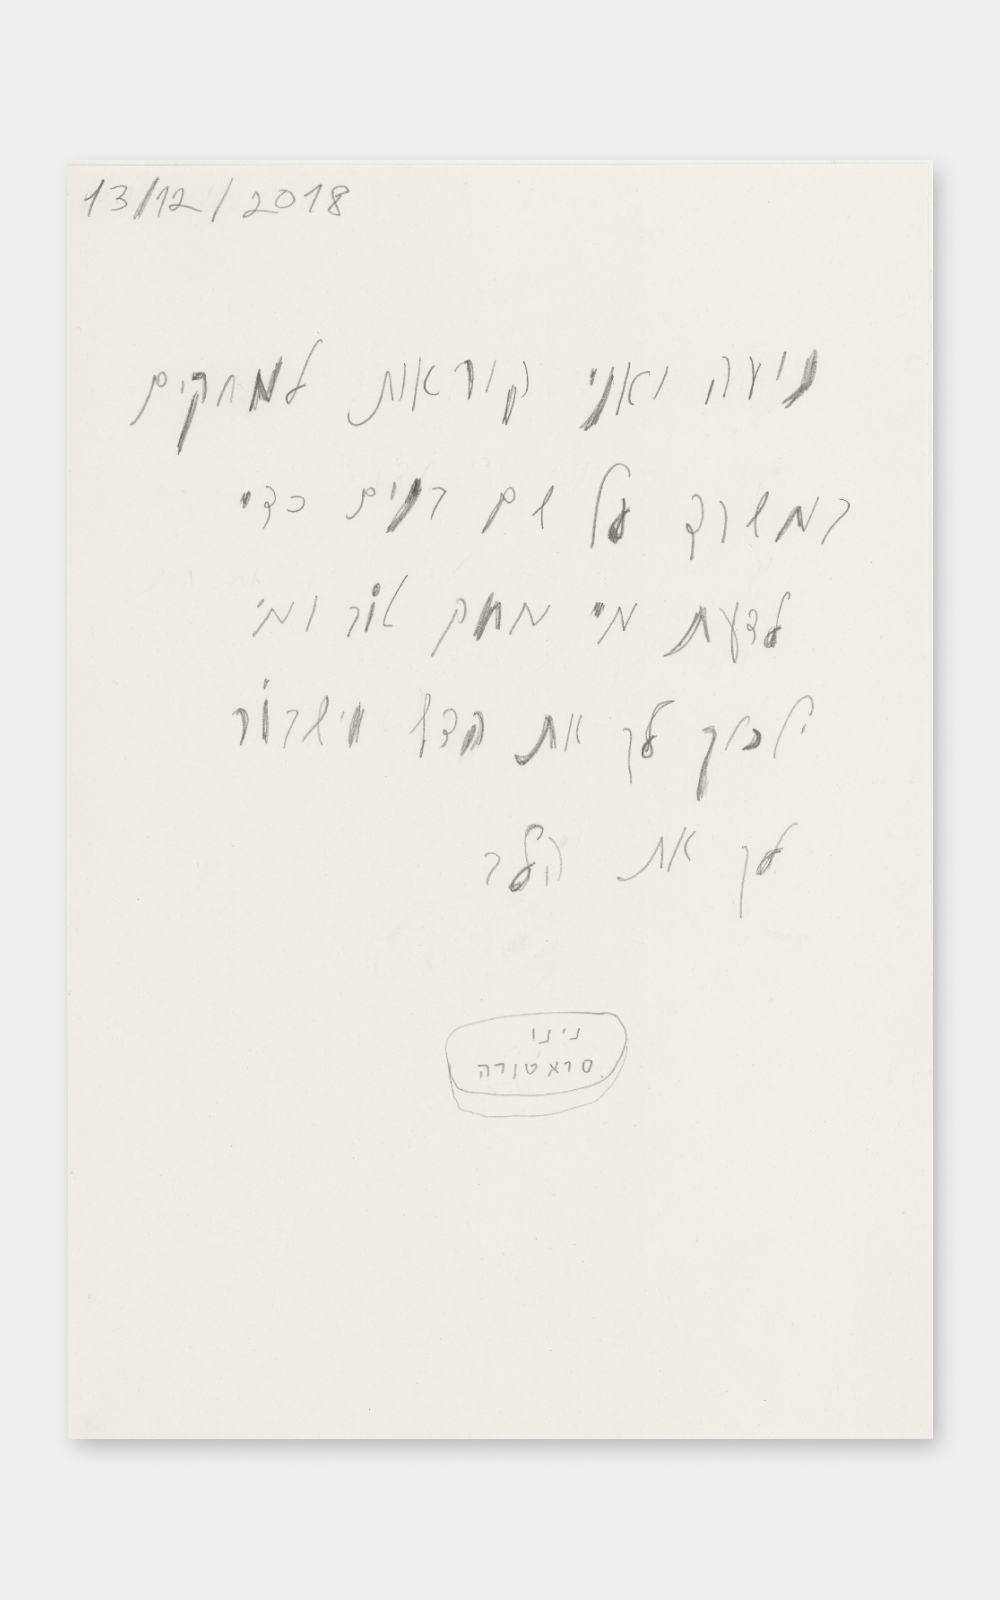 13/12/2018
נועה ואני קוראות למחקים
במשרד על שם בנים כדי
לדעת מי מחק טוב ומי
ילכלך לך את הדף וישבור
לך את הלב
נינו
סראטורה